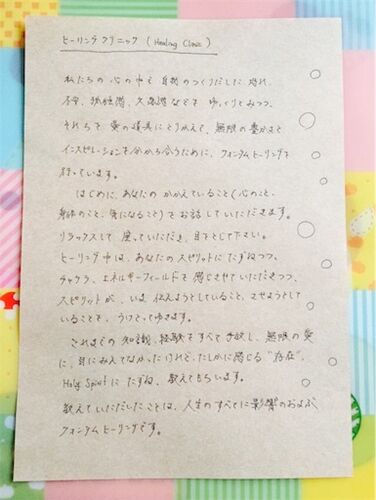 ヒーリングクリニック (Healing Clinic)
私たちの心の中で自我のつくりだした恐れ、
不安、孤独感、欠乏感などを ゆっくりとみつつ、
それらを愛の道具にとりかえて、無限の豊かさと
インスピレーションを分かち合うために、クォンタムヒーリングを
行っています。
はじめに、あなたの かかえていること(心のこと、
身体のこと、気になること)をお話していただきます。
リラックスして座っていただき、目をとじて下さい。
ヒーリング中は、あなたのスピリットにたずねつつ、
チャクラ、エネルギーフィールドを感じさせていただきつつ、
スピリットが、いま、伝えようとしていること、させようとして
いることを、うけとってゆきます。
これまでの知識、経験をすべて手放し、無限の愛
に、目にみえてなかったけれど、たしかに感じる"存在"、
Holy Spiritに たずね、教えてもらいます。
教えていただいたことは、人生のすべてに影響のおよぶ、
クォンタムヒーリングです。